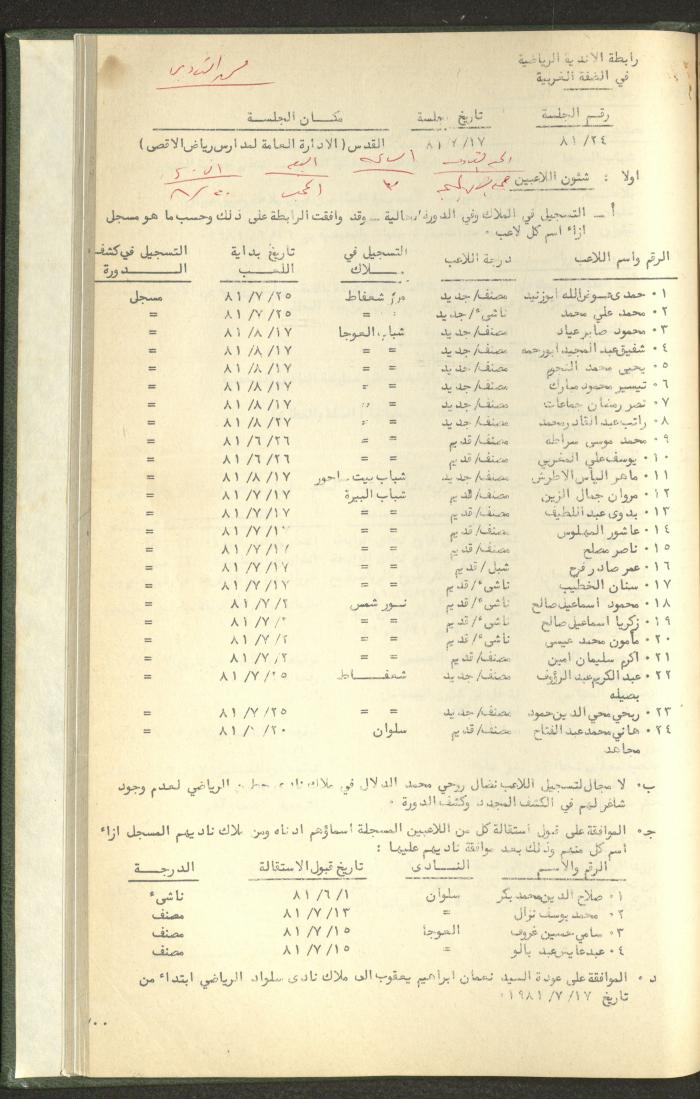 رابطة الاندية الرياضية
في الضفة الغربية
رقم الجلسة تاريخ جلسة مكان الجلسة
٨١/٢٤ ٨١/٧/١٧ القدس (الادارة العامة لمدارس رياض الاقصى)
اولا : شئون اللاعبين
أ ــ التسجيل في الملاك وفي الدورة الحالية ــ وقد وافقت الرابطة على ذلك وحسب ما هو مسجل
ازاء اسم كل لاعب ٠
الرقم واسم اللاعب درجة اللاعب التسجيل في ملاك تاريخ بداية اللعب التسجيل في كشف الدورة
٠١ حمدي عوض الله ابوزنيد مصنف/جديد مركز شعفاط ٨١/٧/٢٥ مسجل
٠٢ محمد علي محمد ناشىء/جديد = = ٨١/٧/٢٥ =
٠٣ محمود صابر عياد مصنف/جديد شباب العوجا ٨١/٨/١٧ =
٠٤ شفيق عبد المجيد ابورحمه مصنف/جديد = = ٨١/٨/١٧ =
٠٥ يحيى محمد النجوم مصنف/جديد = = ٨١/٨/١٧ =
٠٦ تيسير محمود مبارك مصنف/جديد = = ٨١/٨/١٧ =
٠٧ نصر رمضان جماعات مصنف/جديد = = ٨١/٨/١٧ =
٠٨ راتب عبد القادر محمد مصنف/جديد = = ٨١/٨/٢٧ =
٠٩ محمد موسى سراطه مصنف/قديم = = ٨١/٦/٢٦ =
٠١٠ يوسف علي المغربي مصنف/قديم = = ٨١/٦/٢٦ =
٠١١ ماهر الياس الاطرش مصنف/جديد شباب بيت ساحور ٨١/٨/١٧ =
٠١٢ مروان جمال الزين مصنف/قديم شباب البيرة ٨١/٧/١٧ =
٠١٣ بدوى عبد اللطيف مصنف/قديم = = ٨١/٧/١٧ =
٠١٤ عاشور المهلوس مصنف/قديم = = ٨١/٧/١٧ =
٠١٥ ناصر مصلح مصنف/قديم = = ٨١/٧/١٧ =
٠١٦ عمر صادر فرح شبل/قديم = = ٨١/٧/١٧ =
٠١٧ سنان الخطيب ناشىء/قديم = = ٨١/٧/١٧ =
٠١٨ محمود اسماعيل صالح ناشىء/قديم نور شمس ٨١/٧/٢ =
٠١٩ زكريا اسماعيل صالح ناشىء/قديم = = ٨١/٧/٢ =
٠٢٠ مأمون محمد عيسى ناشىء/قديم = = ٨١/٧/٢ =
٠٢١ اكرم سليمان امين مصنف/قديم = = ٨١/٧/٢ =
٠٢٢ عبد الكريم عبد الرؤوف مصنف/جديد شعفاط ٨١/٧/٢٥ =
بصيله
٠٢٣ ربحي محي الدين حمود مصنف/جديد = = ٨١/٧/٢٥ =
٠٢٤ هاني محمد عبد الفتاح مصنف/قديم سلوان =
مجاهد
ب٠ لا مجال لتسجيل اللاعب نضال روحي محمد الدلال في ملاك نادي الرياضي لعدم وجود
شاغر لهم في الكشف المجدد وكشف الدورة ٠
ج٠ الموافقة على قبول استقالة كل من اللاعبين المسجلة اسماؤهم ادناه ومن ملاك ناديهم المسجل ازاء
اسم كل منهم وذلك بعد موافقة ناديهم عليها :
الرقم والاسم النادى تاريخ قبول الاستقالة الدرجة
٠١ صلاح الدين محمد بكر سلوان ٨١/٦/١ ناشىء
٠٢ محمد يوسف نزال = ٨١/٧/١٣ مصنف
٠٣ سامي حسين غروف العوجا ٨١/٧/١٥ مصنف
٠٤ عبد عايش عبد بالو = ٨١/٧/١٥ مصنف
د ٠ الموافقة على عودة السيد نعمان ابراهيم يعقوب الى ملاك نادى سلواد الرياضي ابتداء من
تاريخ ١٩٨١/٧/١٧ ٠